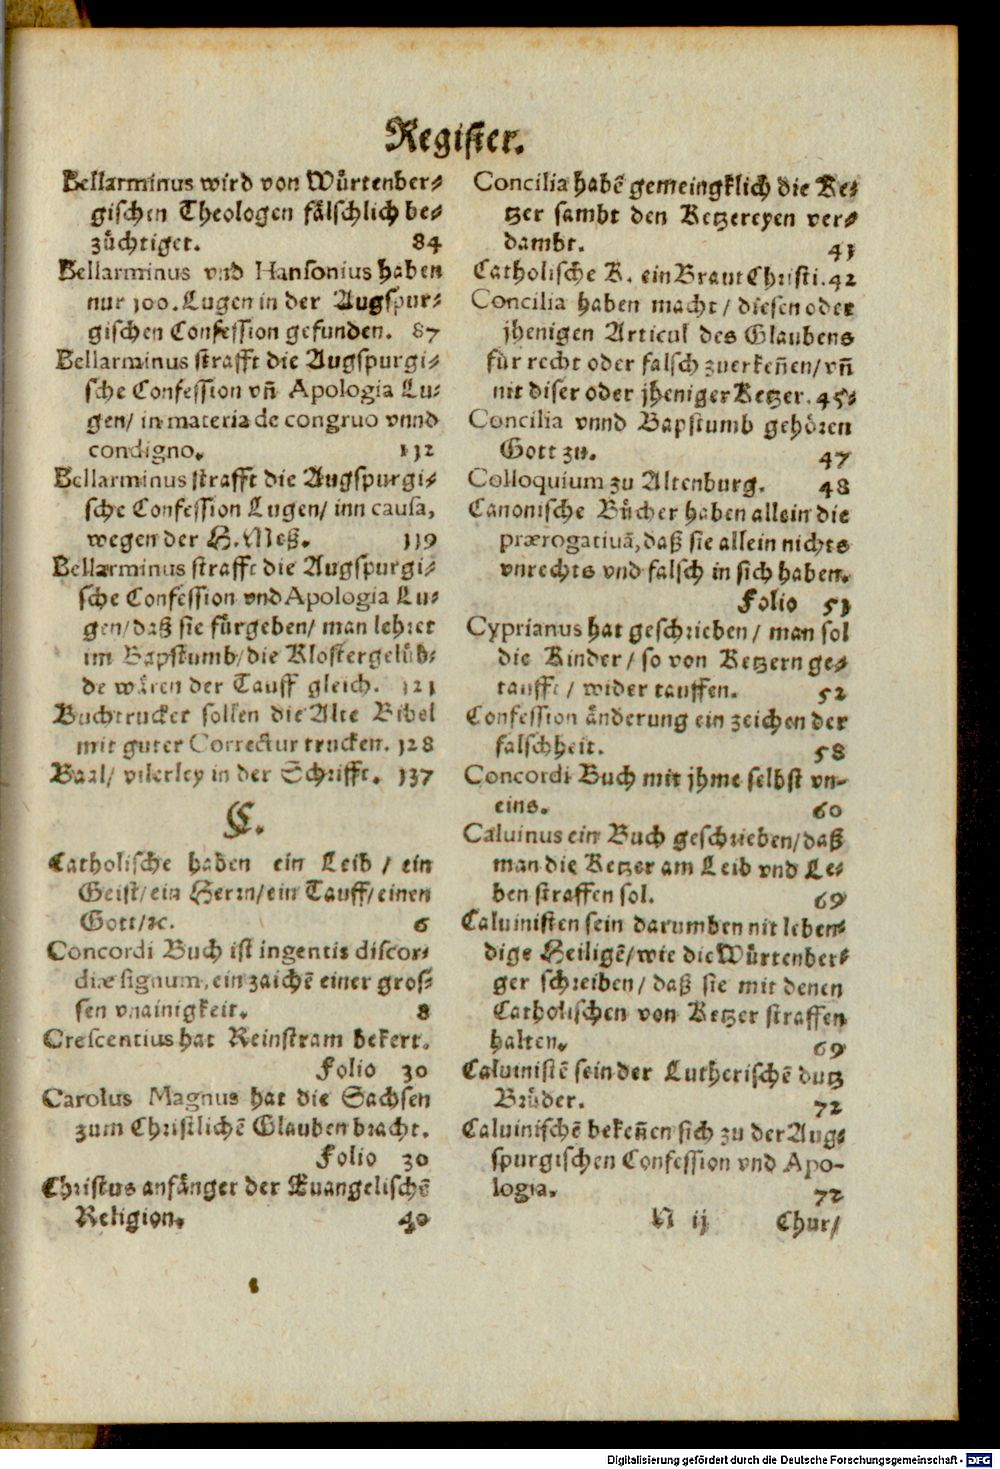 Register.
Bellarminus wird von Würtenber⸗
gischen Theologen fälschlich be⸗
züchtiget. 84
Bellarminus vnd Hansonius haben
nur 100. Lugen in der Augspur⸗
gischen Confession gefunden. 87
Bellarminus strafft die Augspurgi⸗
sche Confession vn̄ Apologia Lu⸗
gen/ in materia de congruo vnnd
condigno. 112
Bellarminus strafft die Augspurgi⸗
sche Confession Lugen/ inn causa,
wegen der H. Meß. 119
Bellarminus strafft die Augspurgi⸗
sche Confession vnd Apologia Lu⸗
gen/ daß sie fürgeben/ man lehret
im Bapstumb/ die Klostergelüb⸗
de wären der Tauff gleich. 121
Buchtrucker sollen die Alte Bibel
mit guter Correctur trucken. 128
Baal/ vilerley in der Schrifft. 137
C.
Catholische haben ein Leib / ein
Geist/ ein Herrn/ ein Tauff/ einen
Gott/ ꝛc. 6
Concordi Buch ist ingentis discor⸗
diæ signum, ein zaichē einer gros⸗
sen vnainigkeit. 8
Crescentius hat Reinstram bekert.
Folio 30
Carolus Magnus hat die Sachsen
zum Christlichē Glauben bracht.
Folio 30
Christus anfänger der Euangelischē
Religion. 40
Concilia habē gemeingklich die Ke⸗
tzer sambt den Ketzereyen ver⸗
dambt. 41
Catholische K. ein Braut Christi. 42
Concilia haben macht / diesen oder
jhenigen Articul des Glaubens
für recht oder falsch zuerkeñen/ vñ
mit diser oder jheniger Ketzer. 45⸗
Concilia vnnd Bapstumb gehören
Gott zu. 47
Colloquium zu Altenburg. 48
Canonische Bücher haben allein die
prærogatiuā, daß sie allein nichts
vnrechts vnd falsch in sich haben.
Folio 51
Cyprianus hat geschrieben / man sol
die Kinder / so von Ketzern ge⸗
taufft / wider tauffen. 52
Confession änderung ein zeichen der
falschheit. 58
Concordi Buch mit jhme selbst vn-
eins. 60
Caluinus ein Buch geschrieben/ daß
man die Ketzer am Leib vnd Le⸗
ben straffen sol. 69
Caluinisten sein darumben nit leben⸗
dige Heiligē/ wie die Würtenber⸗
ger schreiben/ daß sie mit denen
Catholischen von Ketzer straffen
halten. 69
Caluinistē sein der Lutherischē dutz
Brüder. 72
Caluinischē bekeñen sich zu der Aug⸗
spurgischen Confession vnd Apo-
logia. 72
N ij Chur/
Digitalisierung gefördert durch die Deutsche Forschungsgemeinschaft - DFG